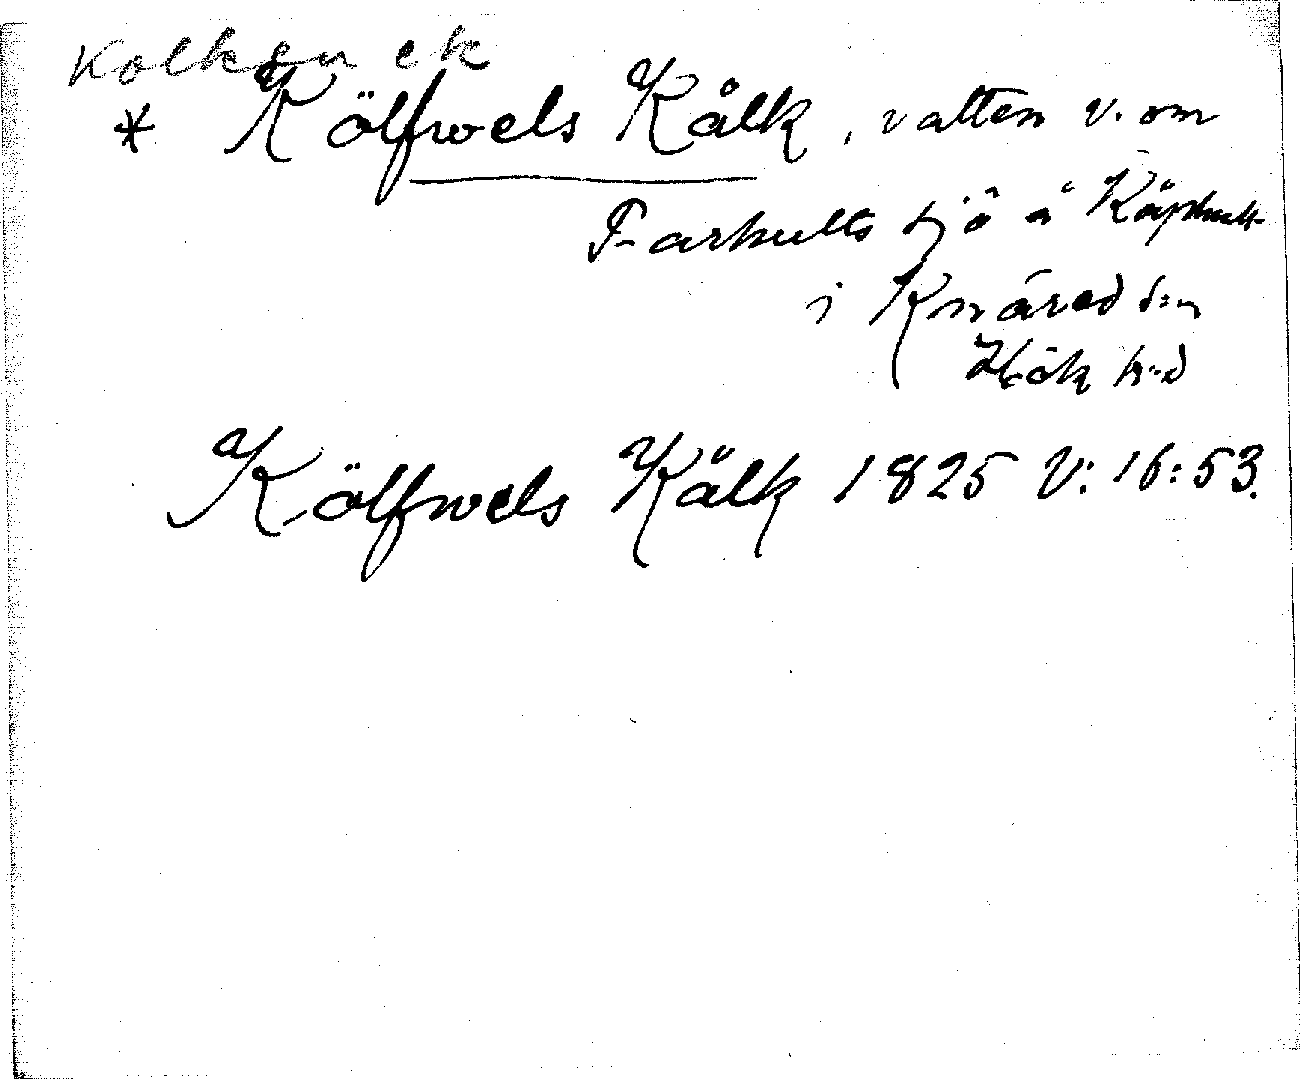 * Kölfwels Kålk, vatten v. om
Farhults sjö å Käphult
i Knäred s:n
Hök h:d
Kölfwels Kålk 1825 V: 16:53.